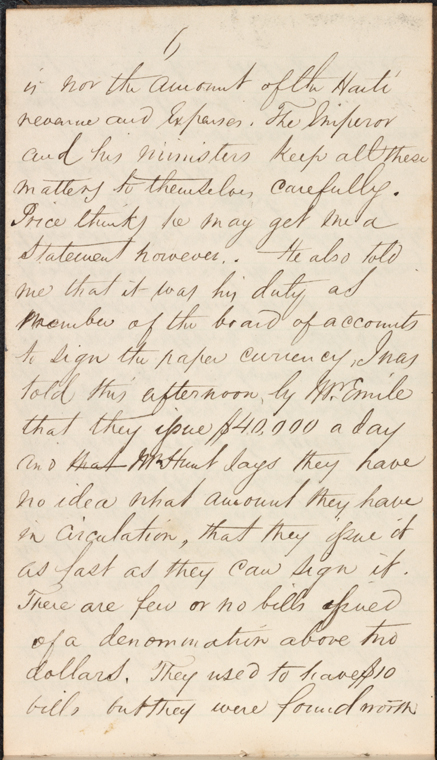 6
is nor the amount of the Haiti
revenue and Expenses. The Emperor
and his ministers keep all these
matters to themselves carefully.
Price thinks he may get me a
Statement however. He also told
me that it was his duty as
member of the board of accounts
to sign the paper currency, I was
told this afternoon, by Mr. Emile
that they issue $40,000 a day
and that Mr Hunt says they have
no idea what amount they have
in circulation, that they issue it
as fast as they can sign it.
There are few or no bills issued
of a denomination above two
dollars. They used to have $10
bills but they were found worth